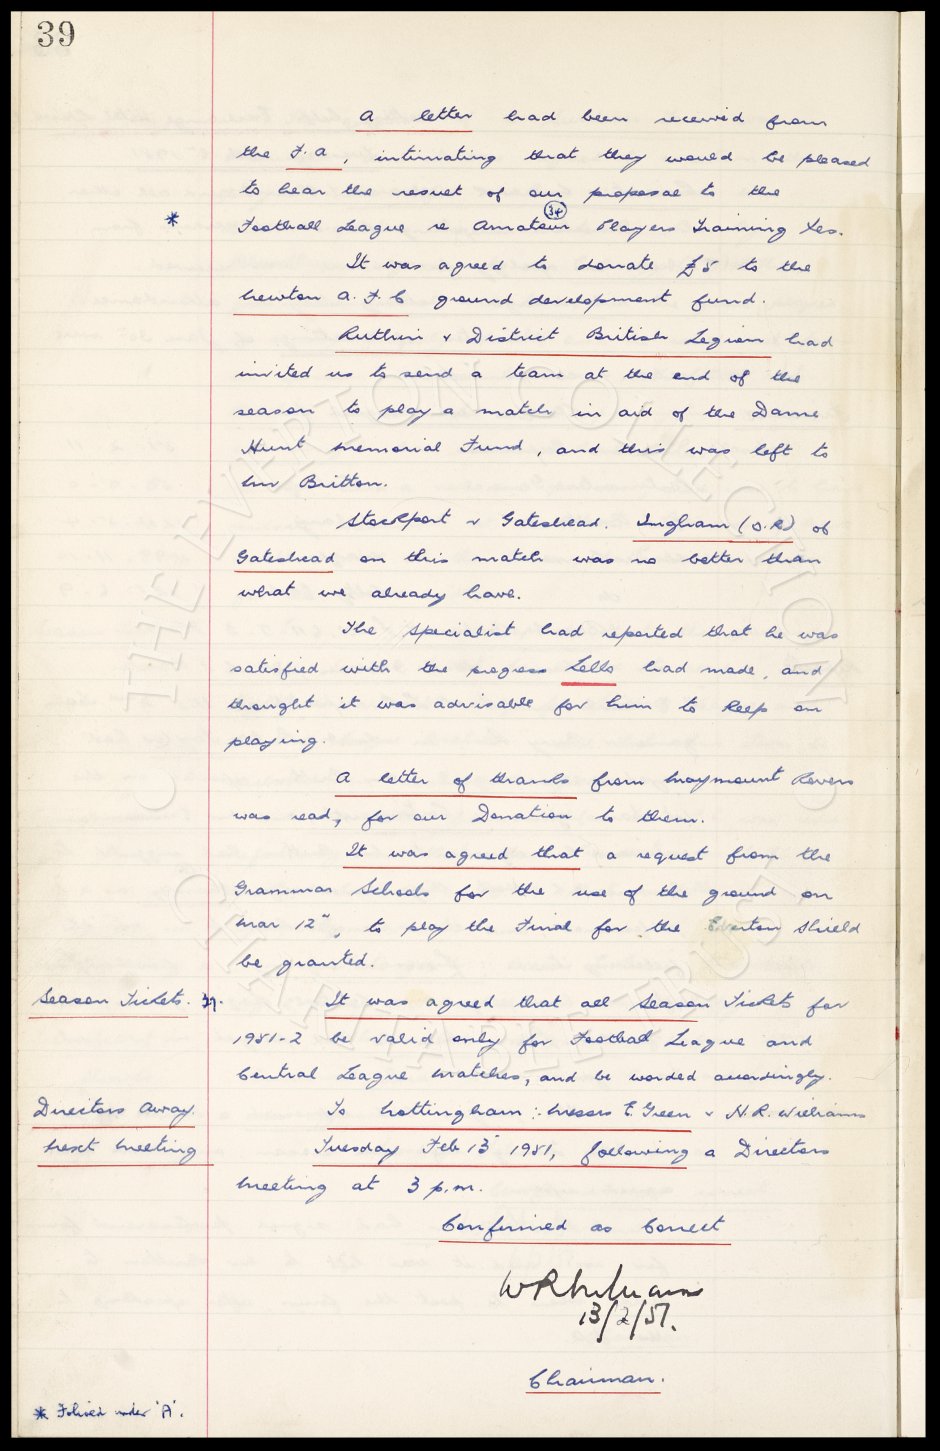 39
A letter had been received from
the F.A, intimating that they would be pleased
to hear the result of our proposal to the
34
* Football League re Amateur Players Training Fes.
It was agreed to donate £5 to the
Newton A.F.C ground development fund.
Ruthin & District British Legion had
invited us to send a team at the end of the
season to play a match in aid of the Dame
Hunt Memorial Fund, and this was left to
Mr Britton.
Stockport v Gateshead. Ingham (O.R) of
Gateshead on this match was no better than
what we already have.
The Specialist had reported that he was
satisfied with the progress Lello had made, and
thought it was advisable for him to keep on
playing.
A letter of thanks from Maymount Rovers
was read, for our Donation to them.
It was agreed that a request from the
Grammar Schools for the use of the ground on
Mar 12", to play the Final for the Everton Shield
be granted.
Season Tickets. 37. It was agreed that all Season Tickets for
1951-2 be valid only for Football League and
Central League Matches, and be worded accordingly.
Directors Away. To Nottingham: Messrs E. Green & N.R. Williams
Next Meeting Tuesday Feb 13 1951, following a Directors
Meeting at 3 p.m.
Confirmed as Correct
WR Williams
13/2/51.
Chairman.
* Folioed under 'A'.
© THE EVERTON COLLECTION
CHARITABLE TRUST